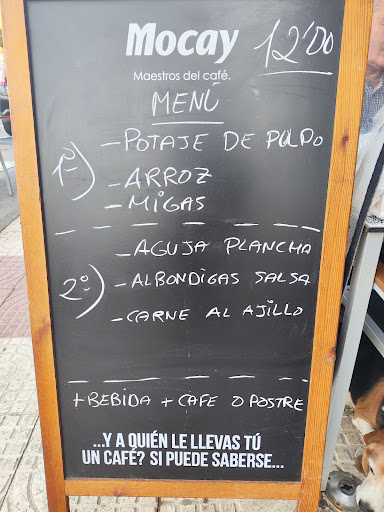 Mocay
Maestros del café.
12'00
MENÚ
1º) - POTAJE DE PULPO
- ARROZ
- MIGAS
2º) - AGUJA PLANCHA
- ALBONDIGAS SALSA
- CARNE AL AJILLO
+ BEBIDA + CAFE O POSTRE
...Y A QUIÉN LE LLEVAS TÚ
UN CAFÉ? SI PUEDE SABERSE...